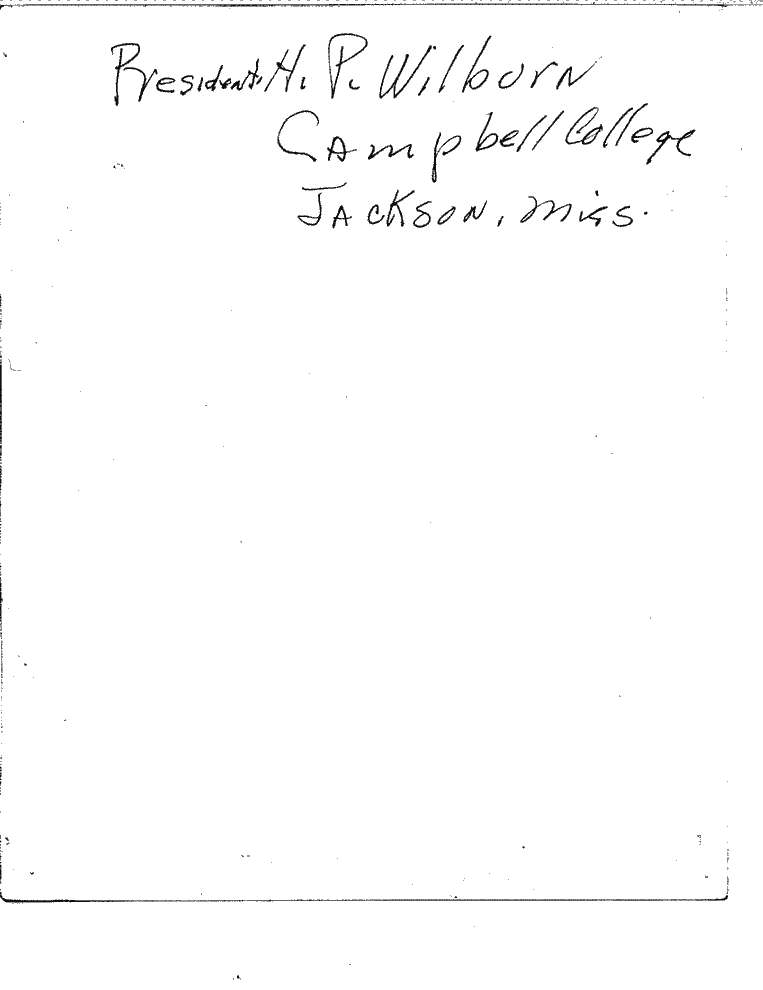 President. H. P. Wilburn
Campbell College
Jackson, Miss.